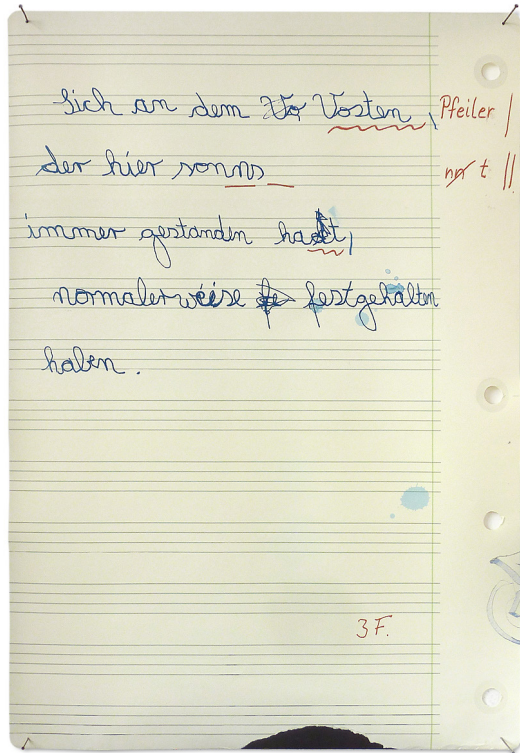 Sich an dem Vo Vosten, Pfeiler |
der hier sonns nn t ||
immer gestanden hadt,
normalerweise fe festgehalten
haben.
3 F.